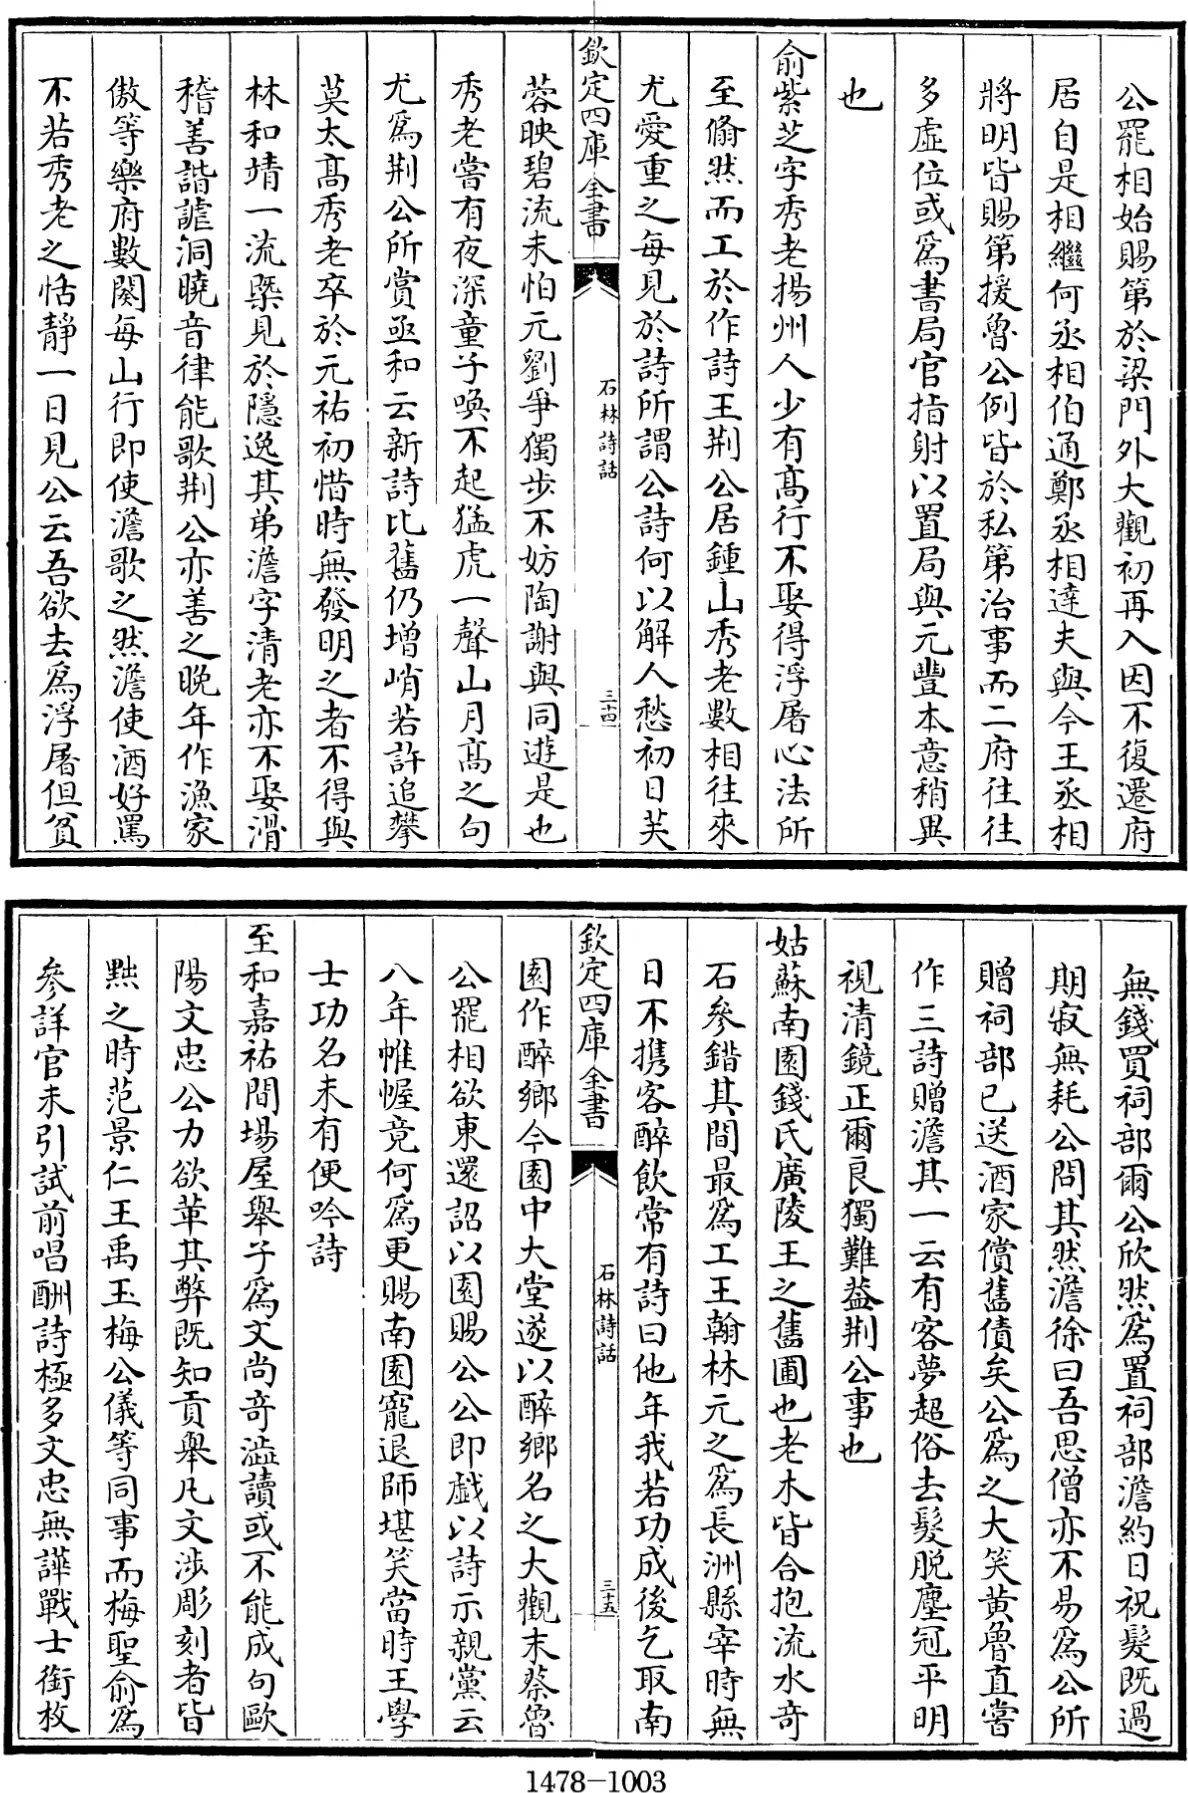 公罷相始賜第於梁門外大觀初再入因不復遷府
居自是相繼何丞相伯通鄭丞相達夫與今王丞相
將明皆賜第援魯公例皆於私第治事而二府往往
多虛位或爲書局官指射以置局與元豐本意稍異
也
俞紫芝字秀老揚州人少有髙行不娶得浮屠心法所
至翛然而工於作詩王荆公居鍾山秀老數相往來
尤愛重之每見於詩所謂公詩何以解人愁初日芙
欽定四庫全書
石林詩話
三十四
蓉映碧流未怕元劉爭獨步不妨陶謝與同遊是也
秀老嘗有夜深童子喚不起猛虎一聲山月髙之句
尤爲荆公所賞亟和云新詩比舊仍增峭若許追攀
莫太髙秀老卒於元祐初惜時無發明之者不得與
林和靖一流槩見於隱逸其弟澹字清老亦不娶滑
稽善諧謔洞曉音律能歌荆公亦善之晚年作漁家
傲等樂府數闋每山行即使澹歌之然澹使酒好罵
不若秀老之恬靜一日見公云吾欲去爲浮屠但貧
無錢買祠部爾公欣然爲置祠部澹約日祝髮既過
期寂無耗公問其然澹徐曰吾思僧亦不易爲公所
贈祠部已送酒家償舊債矣公爲之大笑黄魯直嘗
作三詩贈澹其一云有客夢超俗去髮脱塵冠平明
視清鏡正爾良獨難葢荆公事也
姑蘇南園錢氏廣陵王之舊圃也老木皆合抱流水奇
石參錯其間最爲工王翰林元之爲長洲縣宰時無
日不携客醉飲常有詩曰他年我若功成後乞取南
欽定四庫全書
石林詩話
三十五
園作醉鄉今園中大堂遂以醉鄉名之大觀末蔡魯
公罷相欲東還詔以園賜公公即戱以詩示親黨云
八年帷幄竟何爲更賜南園寵退師堪笑當時王學
士功名未有便吟詩
至和嘉祐間場屋舉子爲文尚奇澁讀或不能成句歐
陽文忠公力欲革其弊既知貢舉凡文涉彫刻者皆
黜之時范景仁王禹玉梅公儀等同事而梅聖俞爲
參詳官未引試前唱酬詩極多文忠無譁戰士銜枚
1478-1003